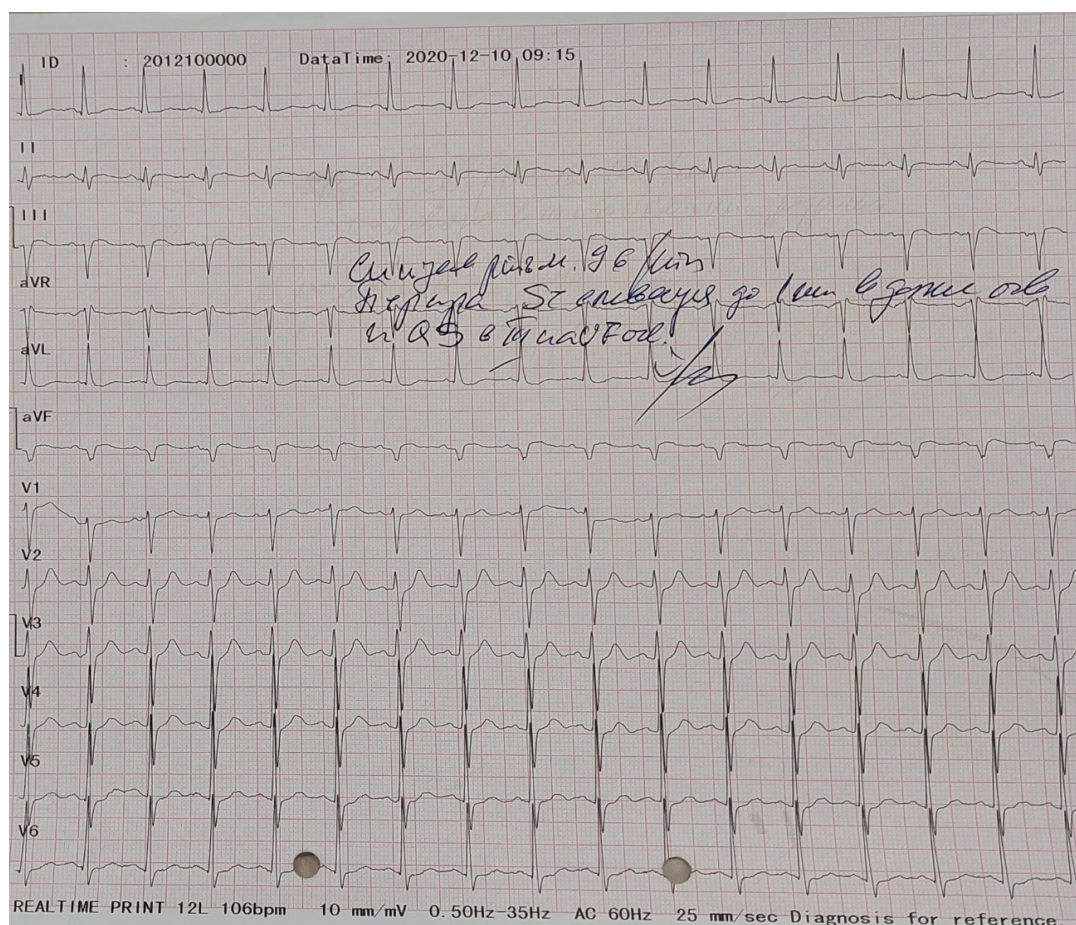 ID : 2012100000 DataTime: 2020-12-10 09:15
I
II
III
aVR
Синусов ритъм. 96/min
ST елевация до 1 mm в долни отв
и QS в III и aVF отв.
aVL
aVF
V1
V2
V3
V4
V5
V6
REALTIME PRINT 12L 106bpm 10 mm/mV 0.50Hz-35Hz AC 60Hz 25 mm/sec Diagnosis for reference.